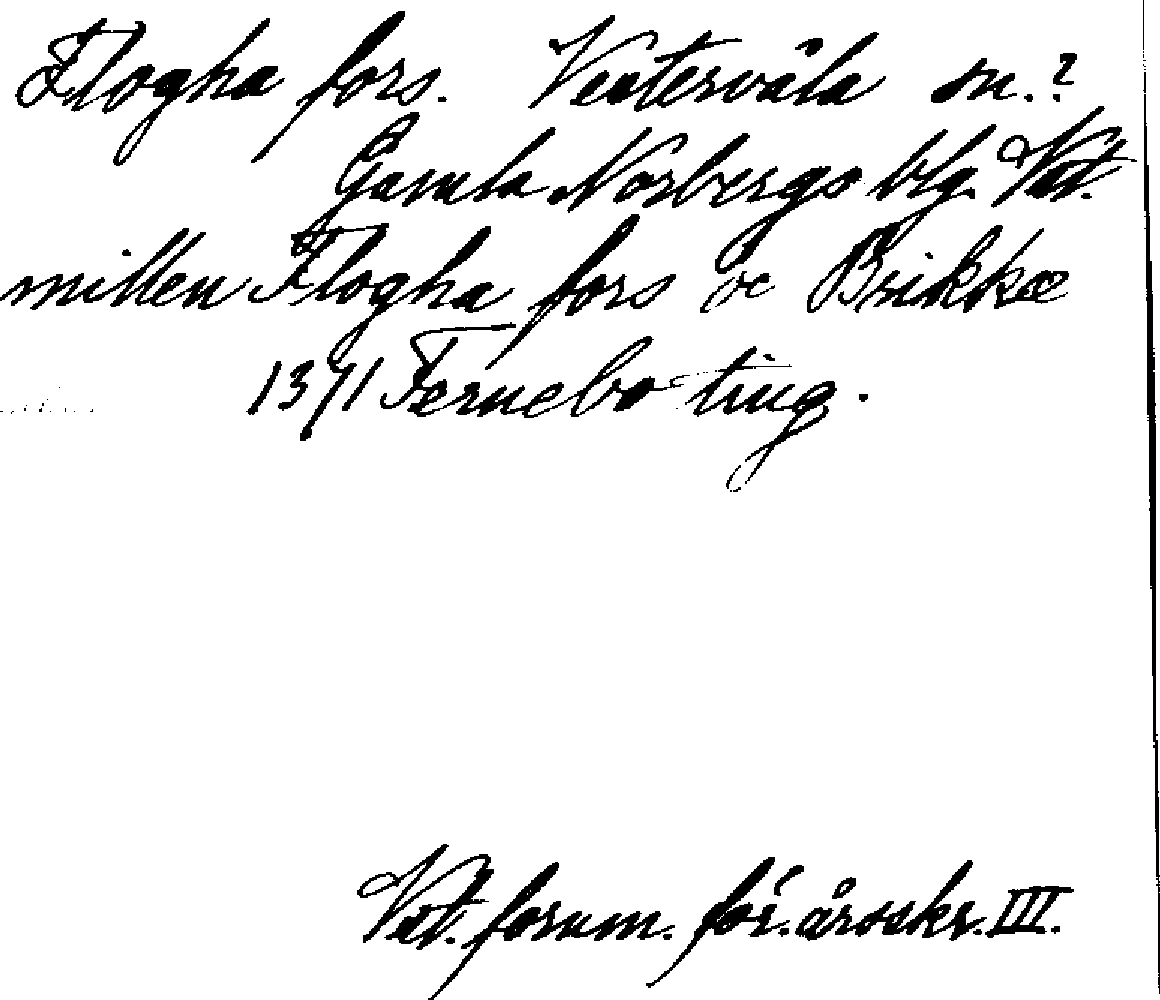 Flogha fors. Vestervåla sn.?
Gamla Norbergs blg. Vst.
millen Flogha fors oc Brikkæ
1371 Fernebo ting.
Vst. fornm. för. årsskr. III.